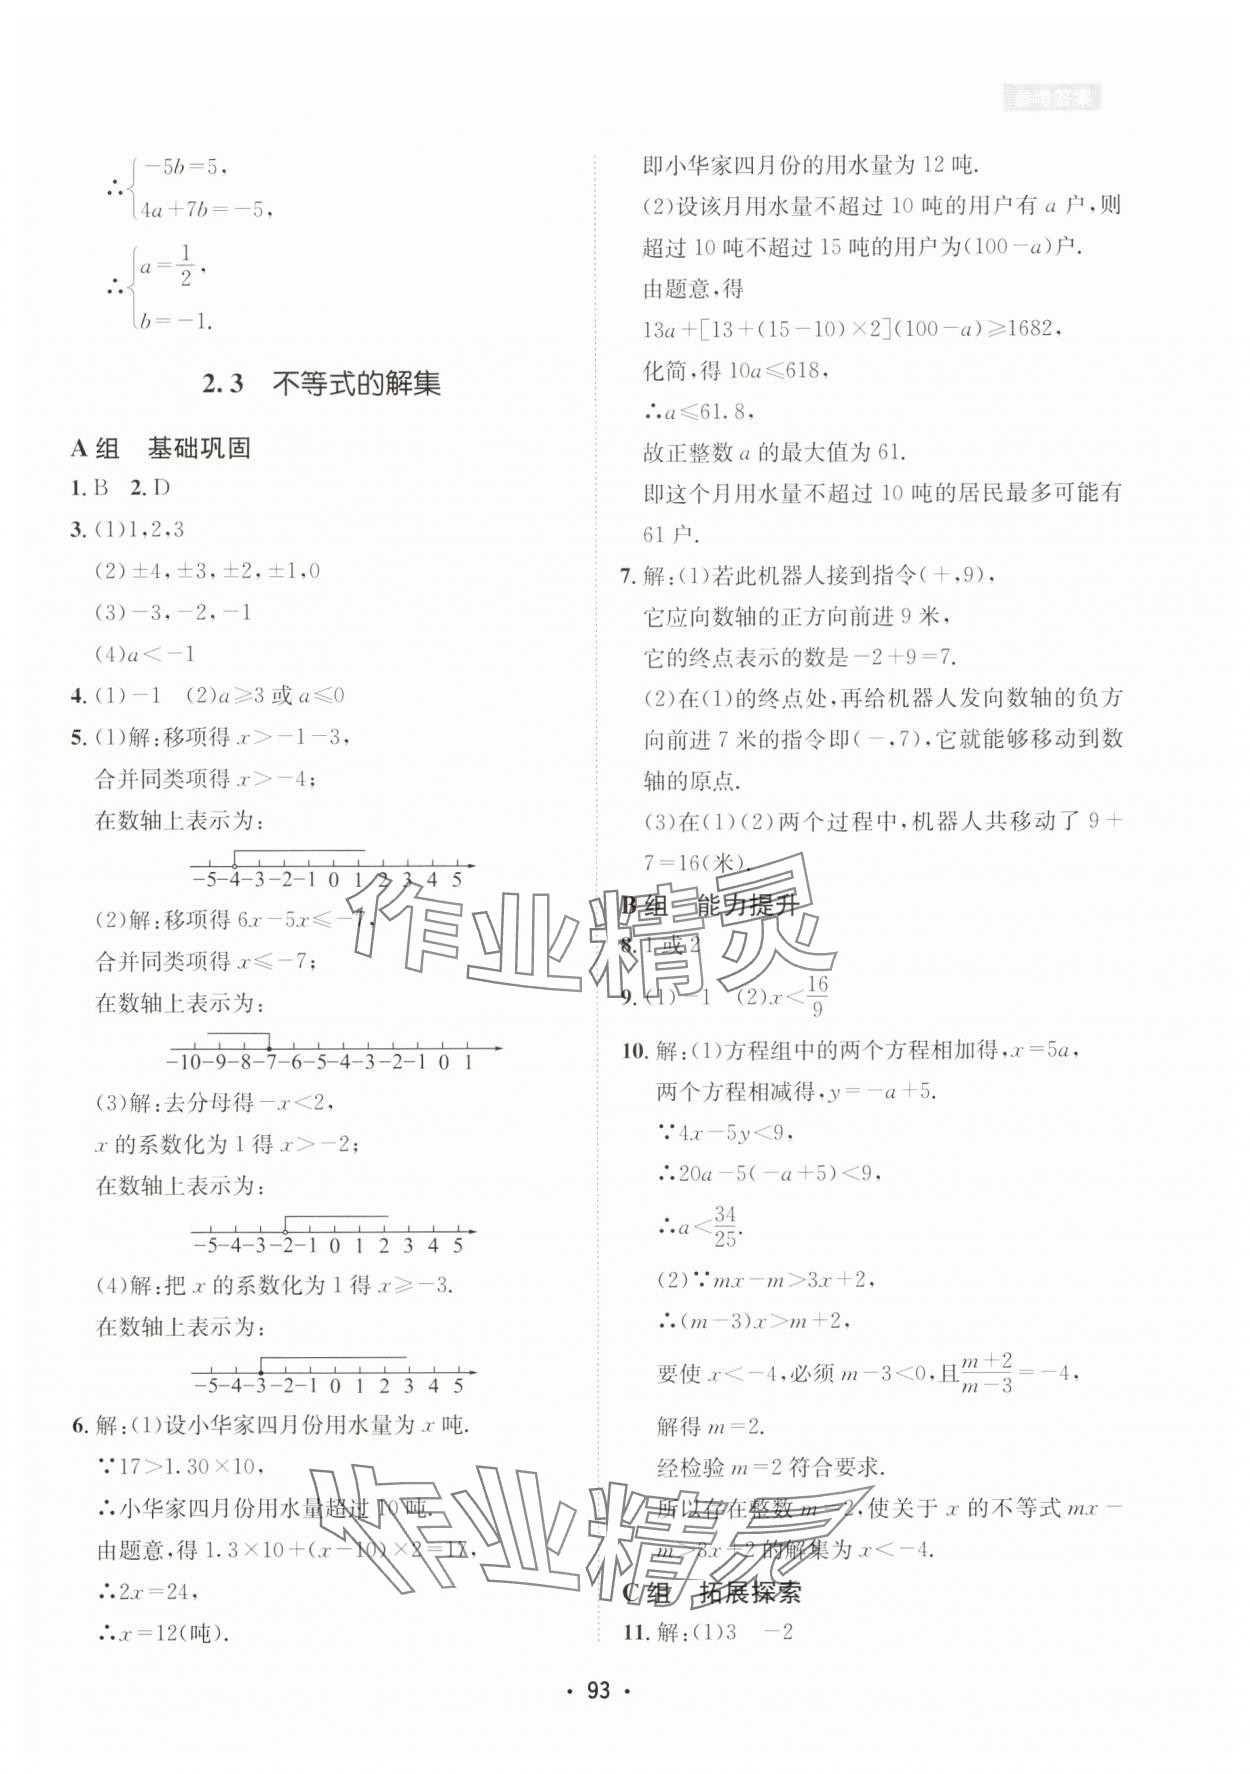 参考答案
∴{−5b=5,
4a+7b=−5,
∴{a=1/2,
b=−1.
2.3 不等式的解集
A组 基础巩固
1. B 2. D
3. (1)1,2,3
(2)±4,±3,±2,±1,0
(3)−3,−2,−1
(4)a<−1
4. (1)−1 (2)a⩾3或a⩽0
5. (1)解:移项得 x>−1−3,
合并同类项得 x>−4;
在数轴上表示为:
−5−4−3−2−1 0 1 2 3 4 5
(2)解:移项得 6x−5x⩽−7,
合并同类项得 x⩽−7;
在数轴上表示为:
−10−9−8−7−6−5−4−3−2−1 0 1
(3)解:去分母得−x<2,
x的系数化为1得 x>−2;
在数轴上表示为:
−5−4−3−2−1 0 1 2 3 4 5
(4)解:把x的系数化为1得 x⩾−3.
在数轴上表示为:
−5−4−3−2−1 0 1 2 3 4 5
6. 解:(1)设小华家四月份用水量为x吨.
∵17>1.30×10,
∴小华家四月份用水量超过10吨.
由题意,得1.3×10+(x−10)×2=17,
∴2x=24,
∴x=12(吨).
即小华家四月份的用水量为12吨.
(2)设该月用水量不超过10吨的用户有a户,则
超过10吨不超过15吨的用户为(100−a)户.
由题意,得
13a+[13+(15−10)×2](100−a)⩾1682,
化简,得10a⩽618,
∴a⩽61.8,
故正整数a的最大值为61.
即这个月用水量不超过10吨的居民最多可能有
61户.
7. 解:(1)若此机器人接到指令(+,9),
它应向数轴的正方向前进9米,
它的终点表示的数是−2+9=7.
(2)在(1)的终点处,再给机器人发向数轴的负方
向前进7米的指令即(−,7),它就能够移动到数
轴的原点.
(3)在(1)(2)两个过程中,机器人共移动了9+
7=16(米).
B组 能力提升
8. 1或2
9. (1)−1 (2)x<16/9
10. 解:(1)方程组中的两个方程相加得,x=5a,
两个方程相减得,y=−a+5.
∵4x−5y<9,
∴20a−5(−a+5)<9,
∴a<34/25.
(2)∵mx−m>3x+2,
∴(m−3)x>m+2,
要使x<−4,必须m−3<0,且(m+2)/(m−3)=−4,
解得m=2.
经检验m=2符合要求.
所以存在整数m=2,使关于x的不等式mx−
m>3x+2的解集为x<−4.
C组 拓展探索
11. 解:(1)3 −2
作业精灵
作业精灵
• 93 •